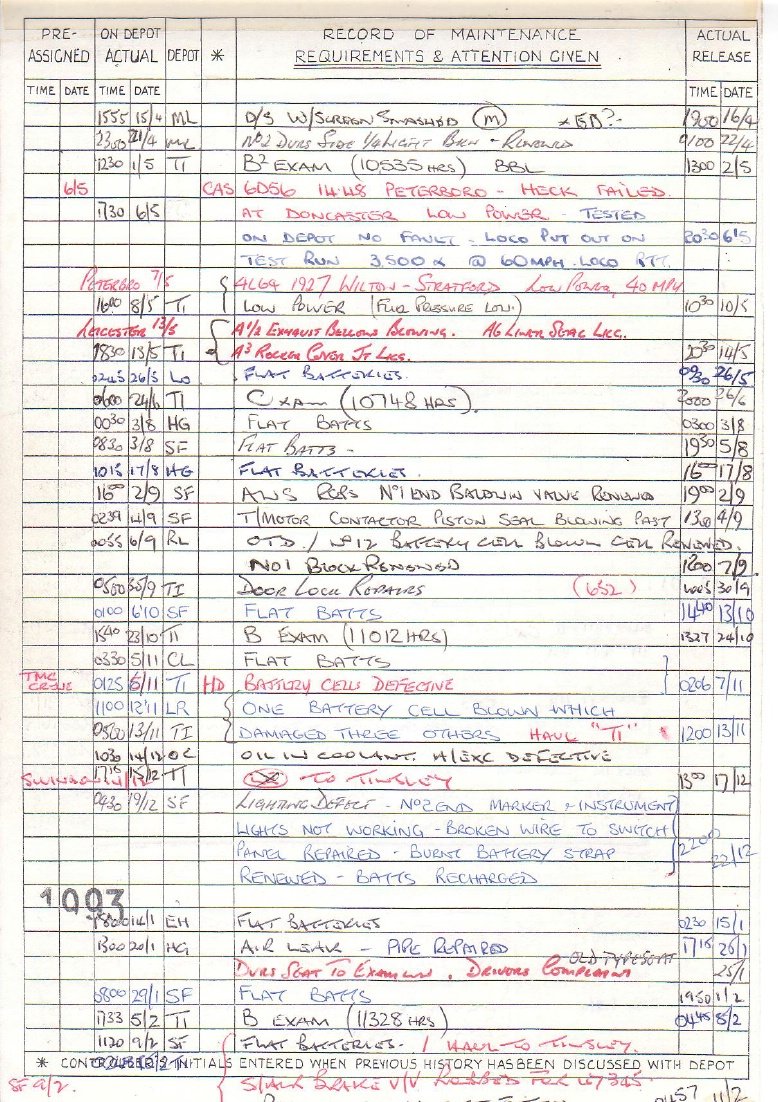 PRE-ASSIGNED ON DEPOT ACTUAL DEPOT * RECORD OF MAINTENANCE REQUIREMENTS & ATTENTION GIVEN ACTUAL RELEASE
TIME DATE TIME DATE TIME DATE
1555 15/4 ML D/S W/SCREEN SMASHED (M) 1900 16/4
2300 21/4 ML No2 DVRS SIDE 1/4 LIGHT BKN - RENEWED 0100 22/4
1230 1/5 TI B2 EXAM (10535 HRS) BBL 1300 2/5
6/5 CAS 6D56 1448 PETERBORO - HECK FAILED
1730 6/5 AT DONCASTER LOW POWER - TESTED
ON DEPOT NO FAULT - LOCO PUT OUT ON 2030 6/5
TEST RUN 3,500 @ 60MPH. LOCO RTT.
PETERBRO 7/5 4L64 1927 WILTON - STRATFORD LOW POWER, 40 MPH
1600 8/5 TI LOW POWER (FUEL PRESSURE LOW) 1030 10/5
LEICESTER 13/5 A1/2 EXHAUST BELLOWS BLOWING. A6 LINER SEAL LKG.
1830 13/5 TI A3 ROCKER COVER JT LKG. 2030 14/5
0245 26/5 LO FLAT BATTERIES. 0930 26/5
0600 24/6 TI C EXAM (10748 HRS). 2000 26/6
0030 3/8 HG FLAT BATTS 0300 3/8
0830 3/8 SF FLAT BATTS - 1930 5/8
1015 17/8 HG FLAT BATTERIES. 1600 17/8
1600 2/9 SF AWS RCRS No1 END BALDWIN VALVE RENEWED 1900 2/9
0239 4/9 SF T/MOTOR CONTACTOR PISTON SEAL BLOWING PAST 1300 4/9
0055 6/9 RL OTD. / No 12 BATTERY CELL BLOWN CELL RENEWED.
NO1 BLOCK RENEWED 1200 7/9
0500 30/9 TI DOOR LOCK REPAIRS (652) 30/9
0100 6/10 SF FLAT BATTS 1440 13/10
1540 23/10 TI B EXAM (11012 HRS) 1327 24/10
0330 5/11 CL FLAT BATTS
TMC CREWE 0125 6/11 TI HD BATTERY CELLS DEFECTIVE 0206 7/11
1100 12/11 LR ONE BATTERY CELL BLOWN WHICH
0500 13/11 TI DAMAGED THREE OTHERS HAUL "TI" 1200 13/11
1030 14/12 OC OIL IN COOLANT. H/EXC DEFECTIVE
1715 15/12 TI TO TINSLEY 1300 17/12
0430 19/12 SF LIGHTING DEFECT - No2 END MARKER & INSTRUMENT
LIGHTS NOT WORKING - BROKEN WIRE TO SWITCH
PANEL REPAIRED - BURNT BATTERY STRAP 2200 22/12
RENEWED - BATTS RECHARGED
1003
1800 14/1 EH FLAT BATTERIES 0230 15/1
1300 20/1 HG AIR LEAK - PIPE REPAIRED 1715 26/1
DVRS SEAT TO EXAMINE. DRIVERS COMPLAINT OLD TYPE SEAT 25/1
0800 29/1 SF FLAT BATTS 1950 1/2
1733 5/2 TI B EXAM (11328 HRS) 0445 8/2
1120 9/2 SF FLAT BATTERIES. - / HAUL TO TINSLEY.
* CONTROLLER'S INITIALS ENTERED WHEN PREVIOUS HISTORY HAS BEEN DISCUSSED WITH DEPOT
SF 9/2. S/AIR BRAKE V/V ROBBED FOR 47345
0457 11/2